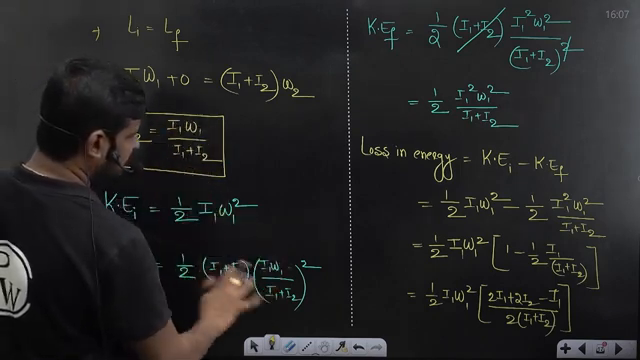 → L₁ = L_f
I₁ω₁ + 0 = (I₁+I₂) ω₂
= I₁ω₁ / (I₁+I₂)
K.E_i = 1/2 I₁ω₁²
= 1/2 (I₁+I₂) (I₁ω₁ / (I₁+I₂))²
K.E_f = 1/2 (I₁+I₂) I₁²ω₁² / (I₁+I₂)²
= 1/2 I₁²ω₁² / (I₁+I₂)
Loss in energy = K.E_i − K.E_f
= 1/2 I₁ω₁² − 1/2 I₁²ω₁² / (I₁+I₂)
= 1/2 I₁ω₁² [1 − 1/2 I₁ / (I₁+I₂)]
= 1/2 I₁ω₁² [(2I₁+2I₂−I₁) / 2(I₁+I₂)]
16:07
W